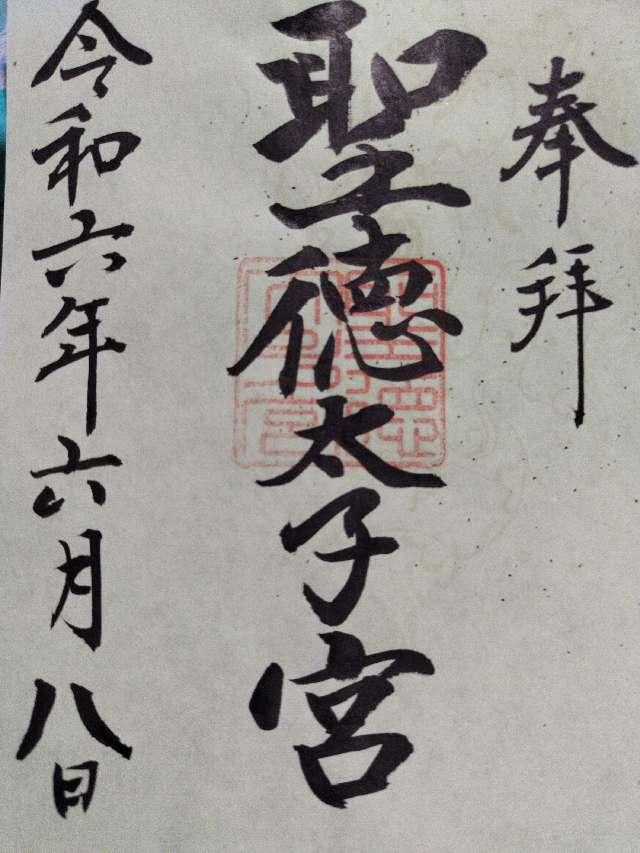 奉拝
聖徳太子宮
令和六年六月八日